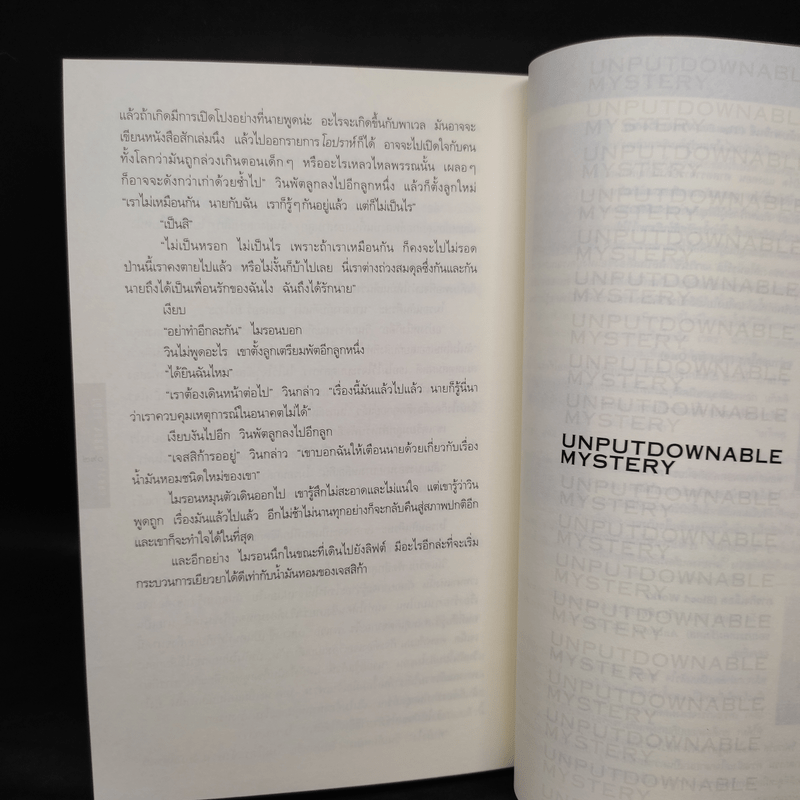 แล้วถ้าเกิดมีการเปิดโปงอย่างที่นายพูดน่ะ อะไรจะเกิดขึ้นกับพาเวล มันอาจจะ
เขียนหนังสือสักเล่มนึง แล้วไปออกรายการโอปราห์ก็ได้ อาจจะไปเปิดใจกับคน
ทั้งโลกว่ามันถูกล่วงเกินตอนเด็กๆ หรืออะไรเหลวไหลพรรณนั้น เผลอๆ
ก็อาจจะดังกว่าเก่าด้วยซ้ำไป" วินพัตลูกลงไปอีกลูกหนึ่ง แล้วก็ตั้งลูกใหม่
"เราไม่เหมือนกัน นายกับฉัน เราก็รู้ๆกันอยู่แล้ว แต่ก็ไม่เป็นไร"
"เป็นสิ"
"ไม่เป็นหรอก ไม่เป็นไร เพราะถ้าเราเหมือนกัน ก็คงจะไปไม่รอด
ป่านนี้เราคงตายไปแล้ว หรือไม่งั้นก็บ้าไปเลย นี่เราต่างถ่วงสมดุลซึ่งกันและกัน
นายถึงได้เป็นเพื่อนรักของฉันไง ฉันถึงได้รักนาย"
เงียบ
"อย่าทำอีกละกัน" ไมรอนบอก
วินไม่พูดอะไร เขาตั้งลูกเตรียมพัตอีกลูกหนึ่ง
"ได้ยินฉันไหม"
"เราต้องเดินหน้าต่อไป" วินกล่าว "เรื่องนี้มันแล้วไปแล้ว นายก็รู้นี่นา
ว่าเราควบคุมเหตุการณ์ในอนาคตไม่ได้"
เงียบงันไปอีก วินพัตลูกลงไปอีกลูก
"เจสสิก้ารออยู่" วินกล่าว "เขาบอกฉันให้เตือนนายด้วยเกี่ยวกับเรื่อง
น้ำมันหอมชนิดใหม่ของเขา"
ไมรอนหมุนตัวเดินออกไป เขารู้สึกไม่สะอาดและไม่แน่ใจ แต่เขารู้ว่าวิน
พูดถูก เรื่องมันแล้วไปแล้ว อีกไม่ช้าไม่นานทุกอย่างก็จะกลับคืนสู่สภาพปกติอีก
และเขาก็จะทำใจได้ในที่สุด
และอีกอย่าง ไมรอนนึกในขณะที่เดินไปยังลิฟต์ มีอะไรอีกล่ะที่จะเริ่ม
กระบวนการเยียวยาได้ดีเท่ากับน้ำมันหอมของเจสสิก้า
UNPUTDOWNABLE
MYSTERY
UNPUTDOWNABLE
MYSTERY
UNPUTDOWNABLE
MYSTERY
UNPUTDOWNABLE
MYSTERY
UNPUTDOWNABLE
MYSTERY
UNPUTDOWNABLE
MYSTERY
UNPUTDOWNABLE
MYSTERY
UNPUTDOWNABLE
MYSTERY
UNPUTDOWNABLE
MYSTERY
UNPUTDOWNABLE
MYSTERY
UNPUTDOWNABLE
MYSTERY
UNPUTDOWNABLE
MYSTERY
UNPUTDOWNABLE
MYSTERY
UNPUTDOWNABLE
MYSTERY
UNPUTDOWNABLE
MYSTERY
UNPUTDOWNABLE
MYSTERY
UNPUTDOWNABLE
MYSTERY
UNPUTDOWNABLE
MYSTERY